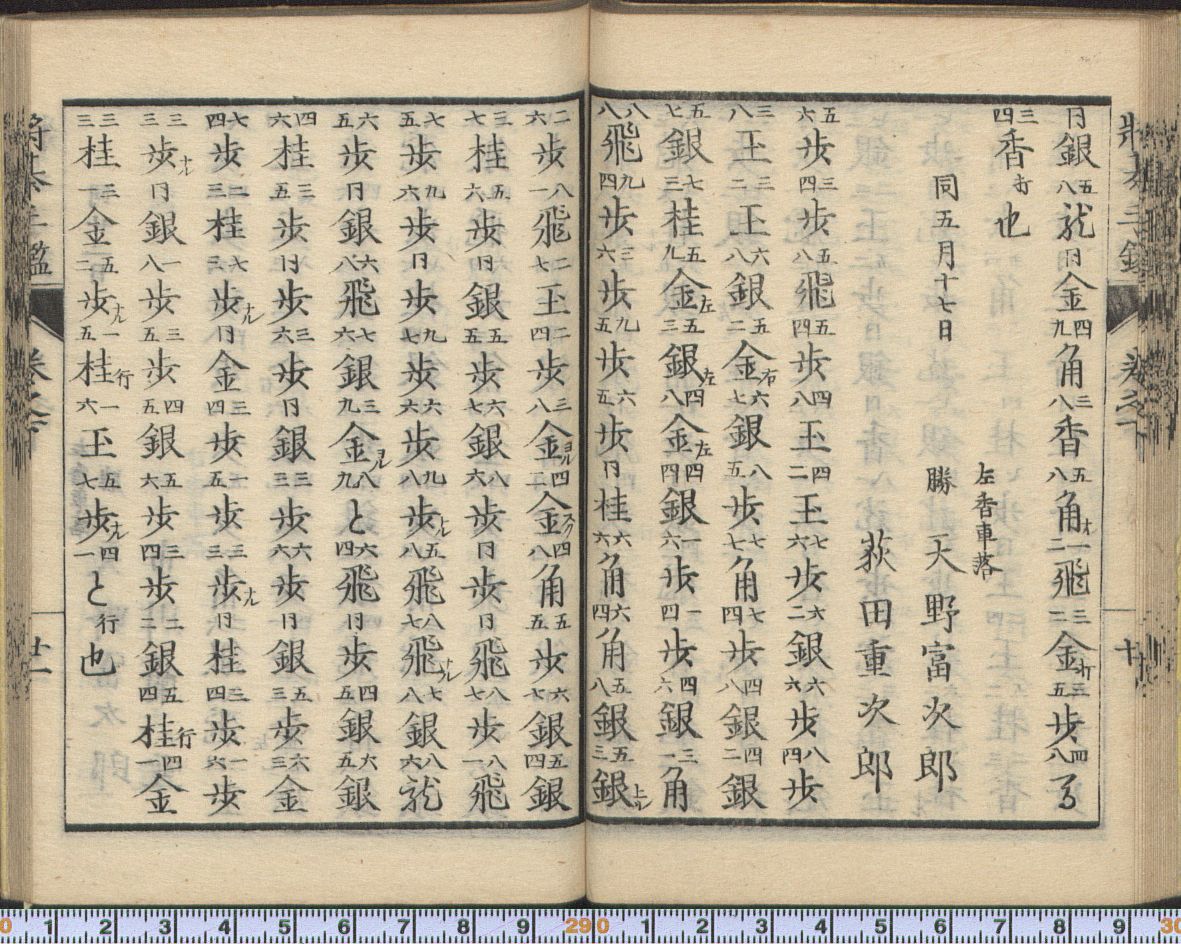 同銀五八龍同金四九角三八香五八角ナ一二飛三二金打三五歩四八る
三四香打也
同五月十七日
左香車落
勝 天野富次郎
荻田重次郎
五六歩三四歩五八飛五四歩四八王四二王七六歩六二銀六六歩八四歩
三八王三二王六八銀五二金右六七銀八五歩七七角七四歩四八銀四二銀
五七銀七三桂五九金左五三銀左四八金左四四銀一六歩一四歩四六銀三一角
八八飛九四歩三六歩九五歩六五歩同桂六六角六四角五八銀五三銀上ル
二六歩八一飛二七王二四歩三八金ヨル四二金スク四八角五五歩六七銀五四銀
三七桂五六歩同銀五五歩六七銀八六歩同歩同飛八七歩八一飛
七五歩九六歩同歩九七歩六六歩九八歩ナル五八飛八七飛ナル七八銀八六龍
六五歩同銀六八飛七六銀三九金ヨル八九と六四飛同歩四五銀六五銀
四六桂三五歩同歩三六歩同銀三三歩六六歩同銀五三歩六三金
七四歩二三桂七三歩ナル同金三四歩一五歩三三歩ナル同桂三四歩一六歩
三三歩ナル同銀一八歩三五歩四五銀五六歩三四歩二二銀五四桂行四一金
三三桂三一金五二歩ナル一五桂行一六王五七歩ナル四一と行也